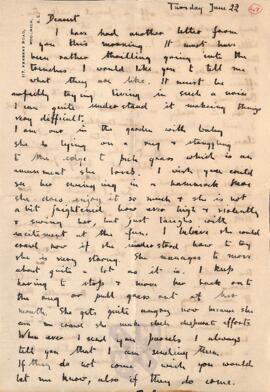 Tuesday June 22
Dearest
I have had another letter from
you this morning. It must have
been rather thrilling going into the
trenches. I would like you to tell me
what they are like. It must be
awfully trying living in such a noise
I can quite understand it making things
very difficult.
I am out in the garden with baby
she is lying on a rug & struggling
to the edge to pick grass which is an
amusement she loves. I wish you could
see her swinging in a hammock
she does enjoy it so much & she is not
a bit frightened how ever high & violently
I swing her, but just laughs with
excitement at the fun. I believe she could
crawl now if she understood how to try
she is very strong. She manages to move
about quite a lot as it is. I keep
having to stop & move her back onto
the rug or pull grass out of her
mouth. She gets quite angry now because she
can not crawl she makes such desperate efforts
When ever I send you parcels I always
tell you that I am sending them.
If they do not come I wish you would
let me know, also if they do come.